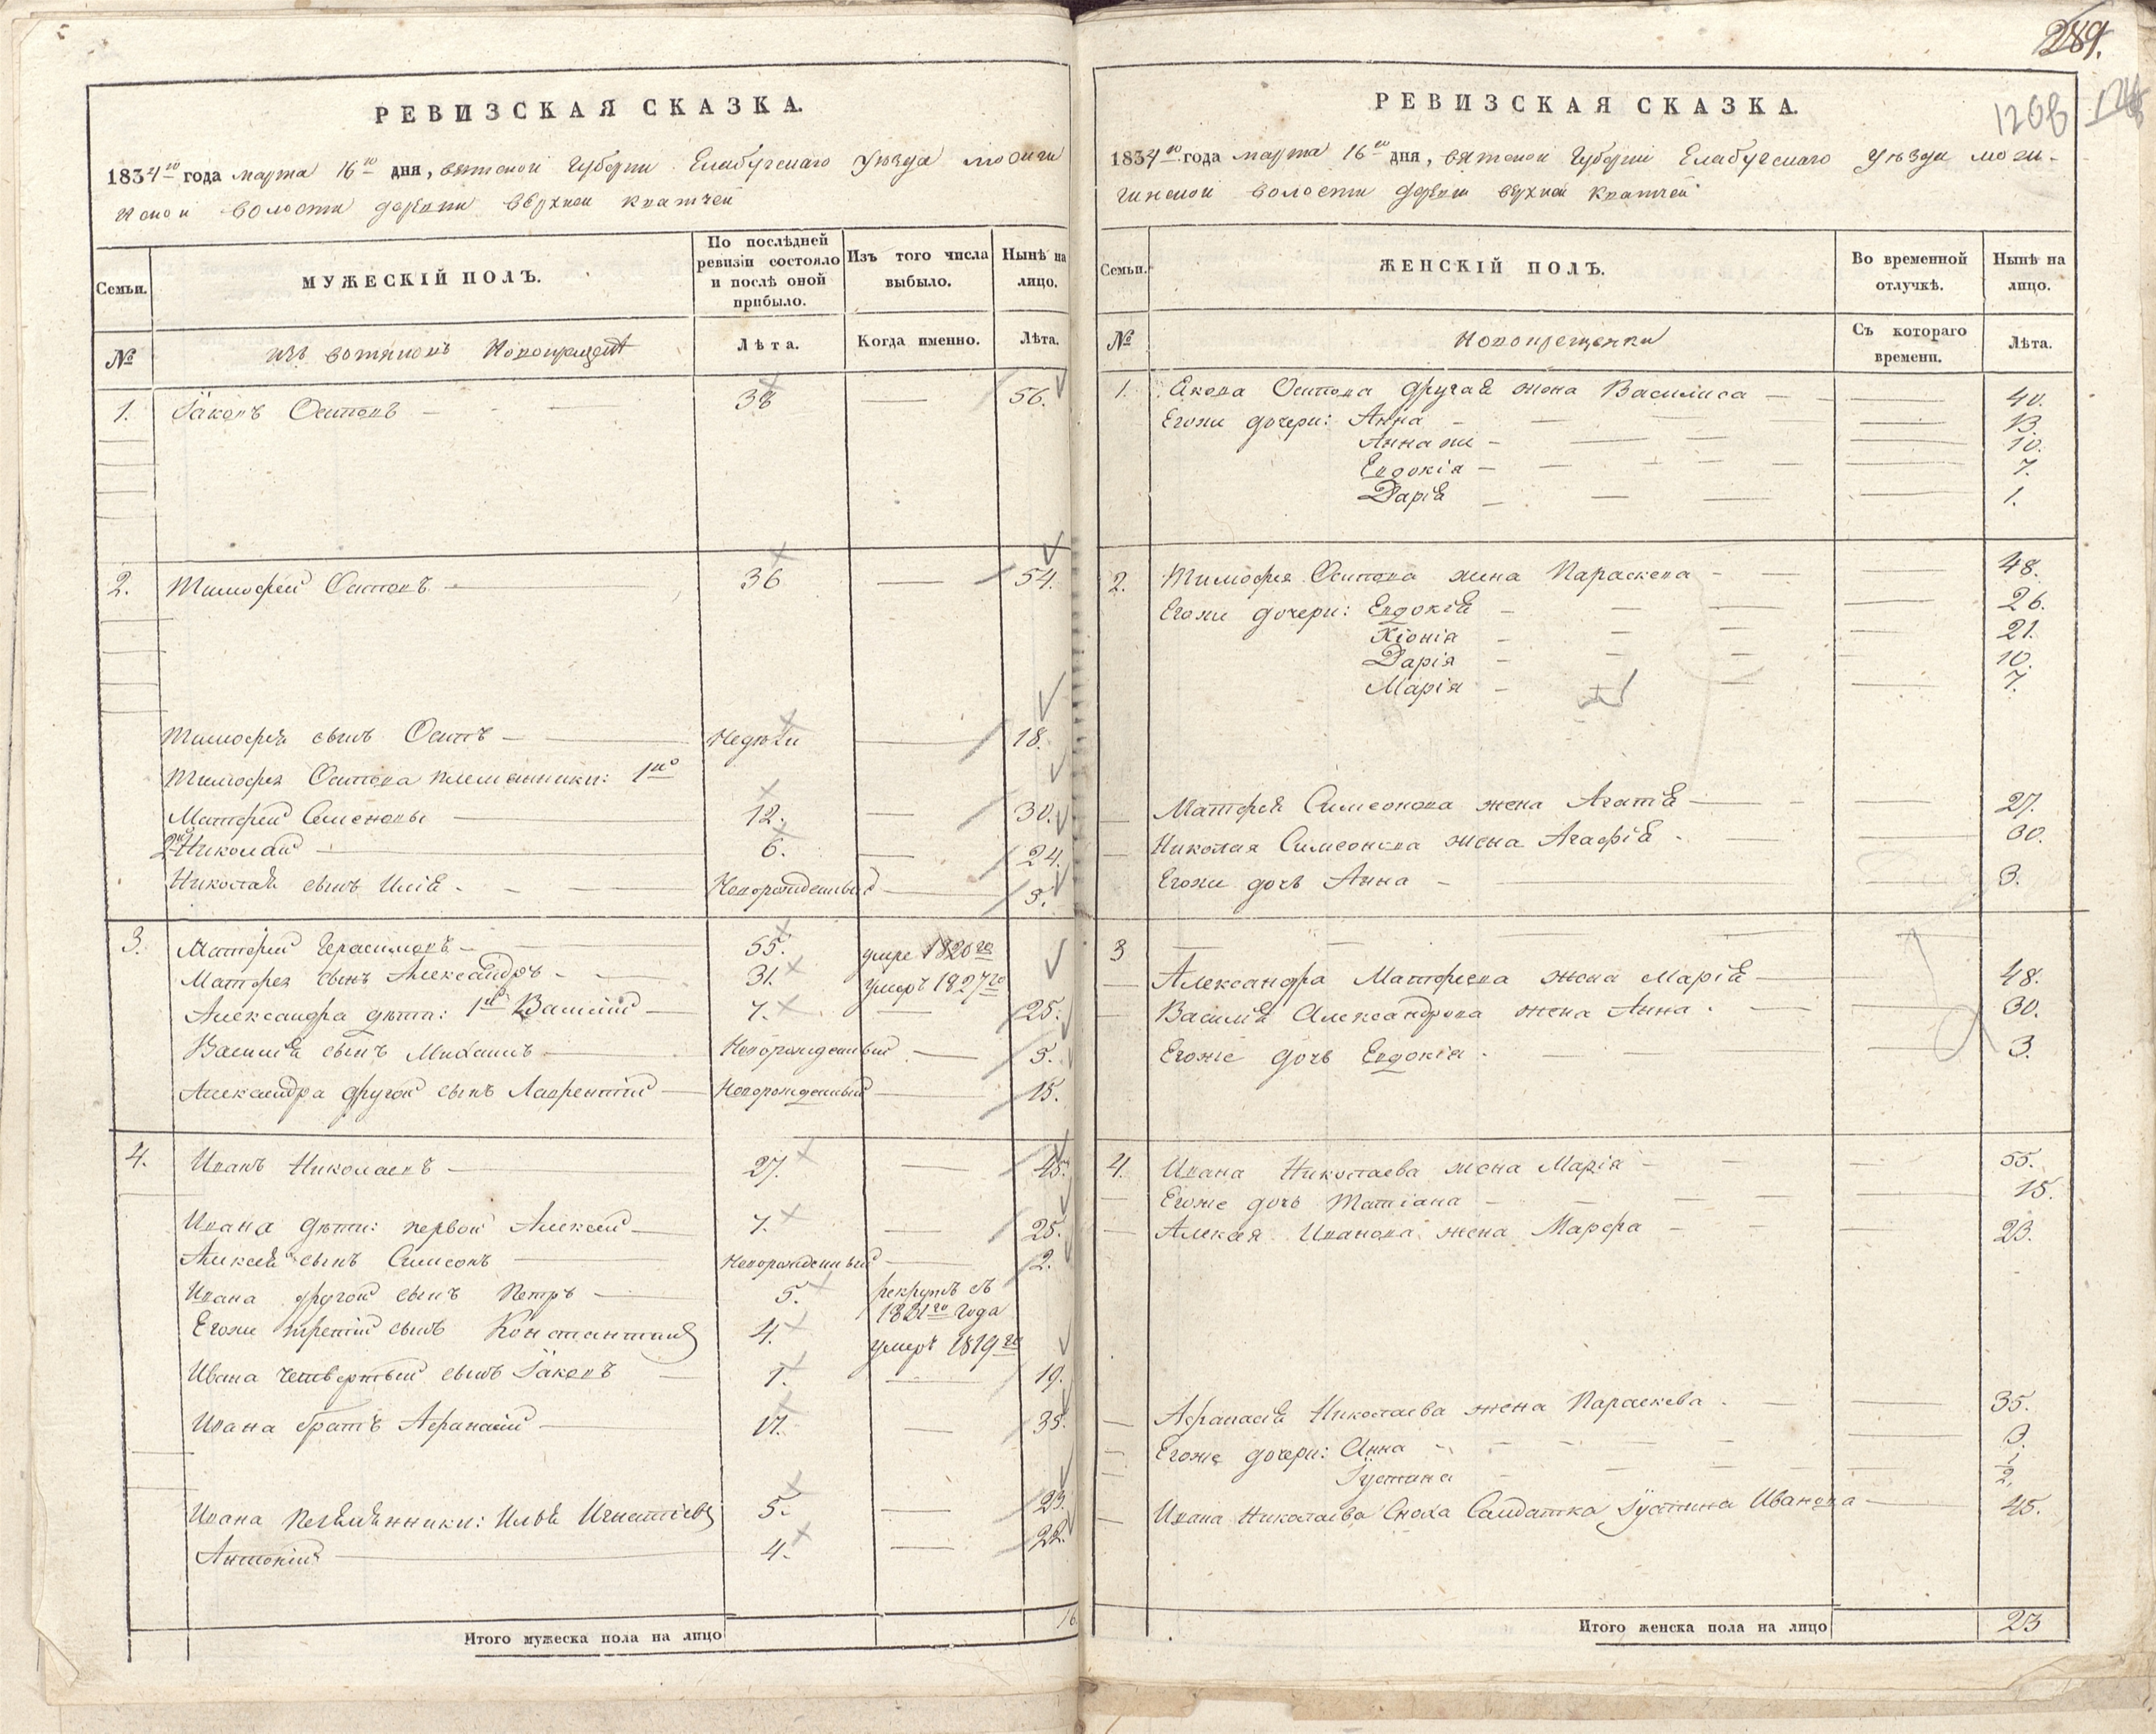 РЕВИЗСКАЯ СКАЗКА.
1834го года марта 16го дня, вятской Губерни Елабугскаго Уезда можги
нской волости деревни верхней
Семьи.
МУЖЕСКІЙ ПОЛЪ.
По послѣдней ревизіи состояло и послѣ оной прибыло.
Изъ того числа выбыло.
Нынѣ на лицо.
№
изъ вотяковъ
Лѣта.
Когда именно.
Лѣта.
1. Іаковъ Осиповъ — 38 — 56.
2. Тимофей Осиповъ — 36 — 54.
Тимофея сынъ Осипъ — Недели — 18.
Тимофея Осипова племянники: 1й
Матфей Симеоновы — 12. — 30.
2й Николай — 6. — 24.
Николая сынъ Илія — Новорожденный — 3.
3. Матфей Герасимовъ — 55. умре 1820го
Матфея сынъ Александръ — 31. умеръ 1827го
Александра дѣти: 1й Василій — 7. — 25.
Василія сынъ Михаилъ — Новорожденный — 5.
Александра другой сынъ Лаврентій — Новорожденный — 15.
4. Иванъ Николаевъ — 27. — 45.
Ивана дѣти: первой Алексей — 7. — 25.
Алексея сынъ Симеонъ — Новорожденный — 2.
Ивана другой сынъ Петръ — 5. рекрутъ съ
1831го года
Егоже третій сынъ Константинъ 4. умеръ 1819го
Ивана четвертый сынъ Іаковъ — 1. — 19.
Ивана братъ Афанасій — 17. — 35.
Ивана племянники: Илья Игнатіевы 5. — 23.
Антоній — 4. — 22.
Итого мужеска пола на лицо 16
289.
1208
РЕВИЗСКАЯ СКАЗКА.
1834го года марта 16го дня, вятской Губерни Елабугскаго Уезда можги-
нской волости деревни верхней
Семьи.
ЖЕНСКІЙ ПОЛЪ.
Во временной отлучкѣ.
Нынѣ на лицо.
№
Новокрещенки
Съ котораго времени.
Лѣта.
1. Якова Осипова другая жена Василиса — 40.
Егоже дочери: Анна — 13.
Анна же — 10.
Евдокія — 7.
Дарія — 1.
2. Тимофея Осипова жена Параскева — 48.
Егоже дочери: Евдокія — 26.
Хіонія — 21.
Дарія — 10.
Марія — 7.
Матфея Симеонова жена Агапія — 27.
Николая Симеонова жена Агафія — 30.
Егоже дочь Анна — 3.
3
Александра Матфиева жена Марія — 48.
Василія Александрова жена Анна — 30.
Егоже дочь Евдокія — 3.
4. Ивана Николаева жена Марія — 55.
Егоже дочь Татіана — 15.
Алексея Иванова жена Марфа — 23.
Афанасія Николаева жена Параскева — 35.
Егоже дочери: Анна — 3.
Іустина — 1/2
Ивана Николаева Сноха Салдатка Іустина Иванова — 45.
Итого женска пола на лицо 23